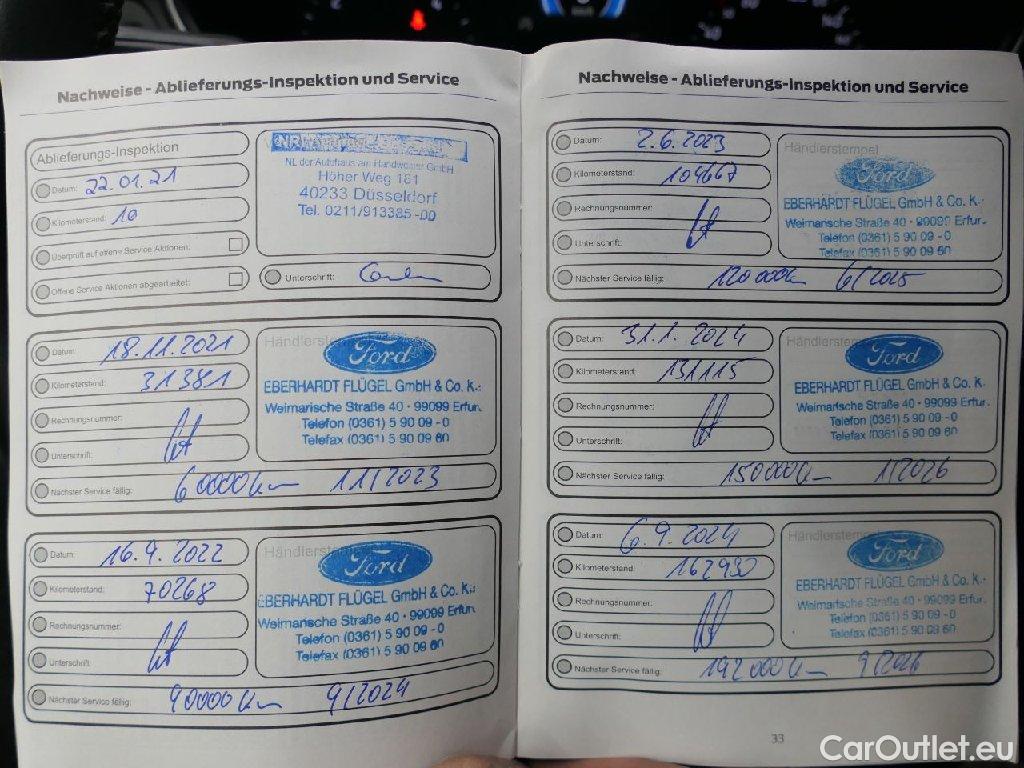 Nachweise - Ablieferungs-Inspektion und Service
Ablieferungs-Inspektion
Datum: 22.01.21
Kilometerstand: 10
Überprüft auf offene Service Aktionen:
Offene Service Aktionen abgearbeitet:
NL der Autohaus am Handweiser GmbH
Höher Weg 181
40233 Düsseldorf
Tel. 0211/913385-00
Unterschrift:
Datum: 18.11.2021
Kilometerstand: 31381
Rechnungsnummer:
Unterschrift:
Nächster Service fällig: 60000km 11/2023
Händlerstempel
Ford
EBERHARDT FLÜGEL GmbH & Co. K.
Weimarische Straße 40 · 99099 Erfur.
Telefon (0361) 5 90 09 - 0
Telefax (0361) 5 90 09 60
Datum: 16.9.2022
Kilometerstand: 70268
Rechnungsnummer:
Unterschrift:
Nächster Service fällig: 90000km 9/2024
Händlerstempel
Ford
EBERHARDT FLÜGEL GmbH & Co. K.
Weimarische Straße 40 · 99099 Erfur.
Telefon (0361) 5 90 09 - 0
Telefax (0361) 5 90 09 60
Nachweise - Ablieferungs-Inspektion und Service
Datum: 2.6.2023
Kilometerstand: 104667
Rechnungsnummer:
Unterschrift:
Nächster Service fällig: 120000km 6/2025
Händlerstempel
Ford
EBERHARDT FLÜGEL GmbH & Co. K.
Weimarische Straße 40 · 99099 Erfur.
Telefon (0361) 5 90 09 - 0
Telefax (0361) 5 90 09 60
Datum: 31.1.2024
Kilometerstand: 131115
Rechnungsnummer:
Unterschrift:
Nächster Service fällig: 150000km 1/2026
Händlerstempel
Ford
EBERHARDT FLÜGEL GmbH & Co. K.
Weimarische Straße 40 · 99099 Erfur.
Telefon (0361) 5 90 09 - 0
Telefax (0361) 5 90 09 60
Datum: 6.9.2024
Kilometerstand: 162930
Rechnungsnummer:
Unterschrift:
Nächster Service fällig: 192000km 9/2026
Händlerstempel
Ford
EBERHARDT FLÜGEL GmbH & Co. K.
Weimarische Straße 40 · 99099 Erfur.
Telefon (0361) 5 90 09 - 0
Telefax (0361) 5 90 09 60
33
CarOutlet.eu